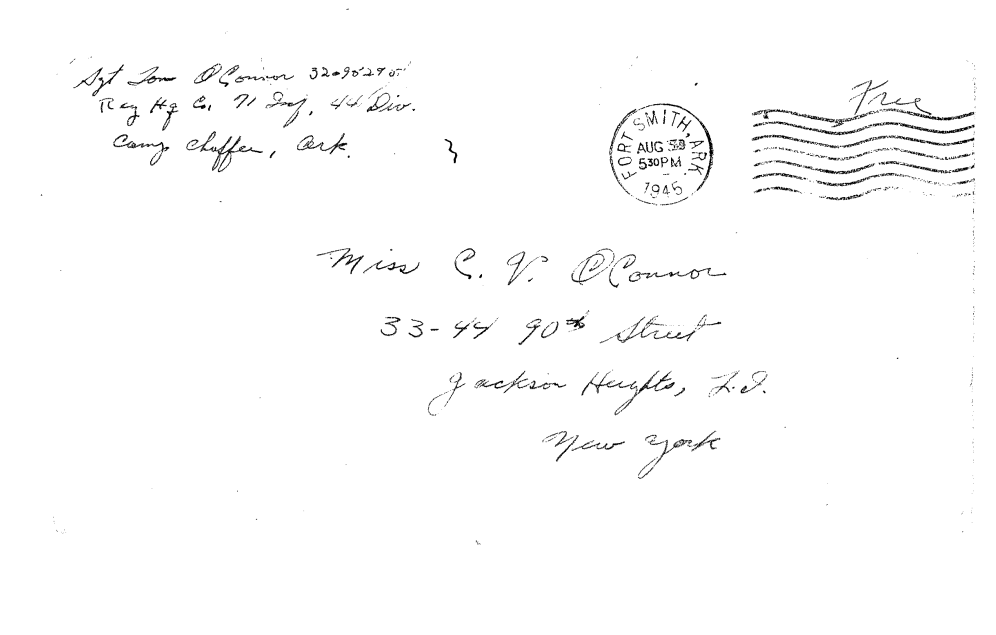 Sgt Tom O'Connor
Reg Hq Co. 71 Inf, 44 Div.
Camp Chaffee, Ark.
Free
FORT SMITH, ARK.
AUG
530PM
1945
Miss C. V. O'Connor
33-44 90th Street
Jackson Heights, L.I.
New York